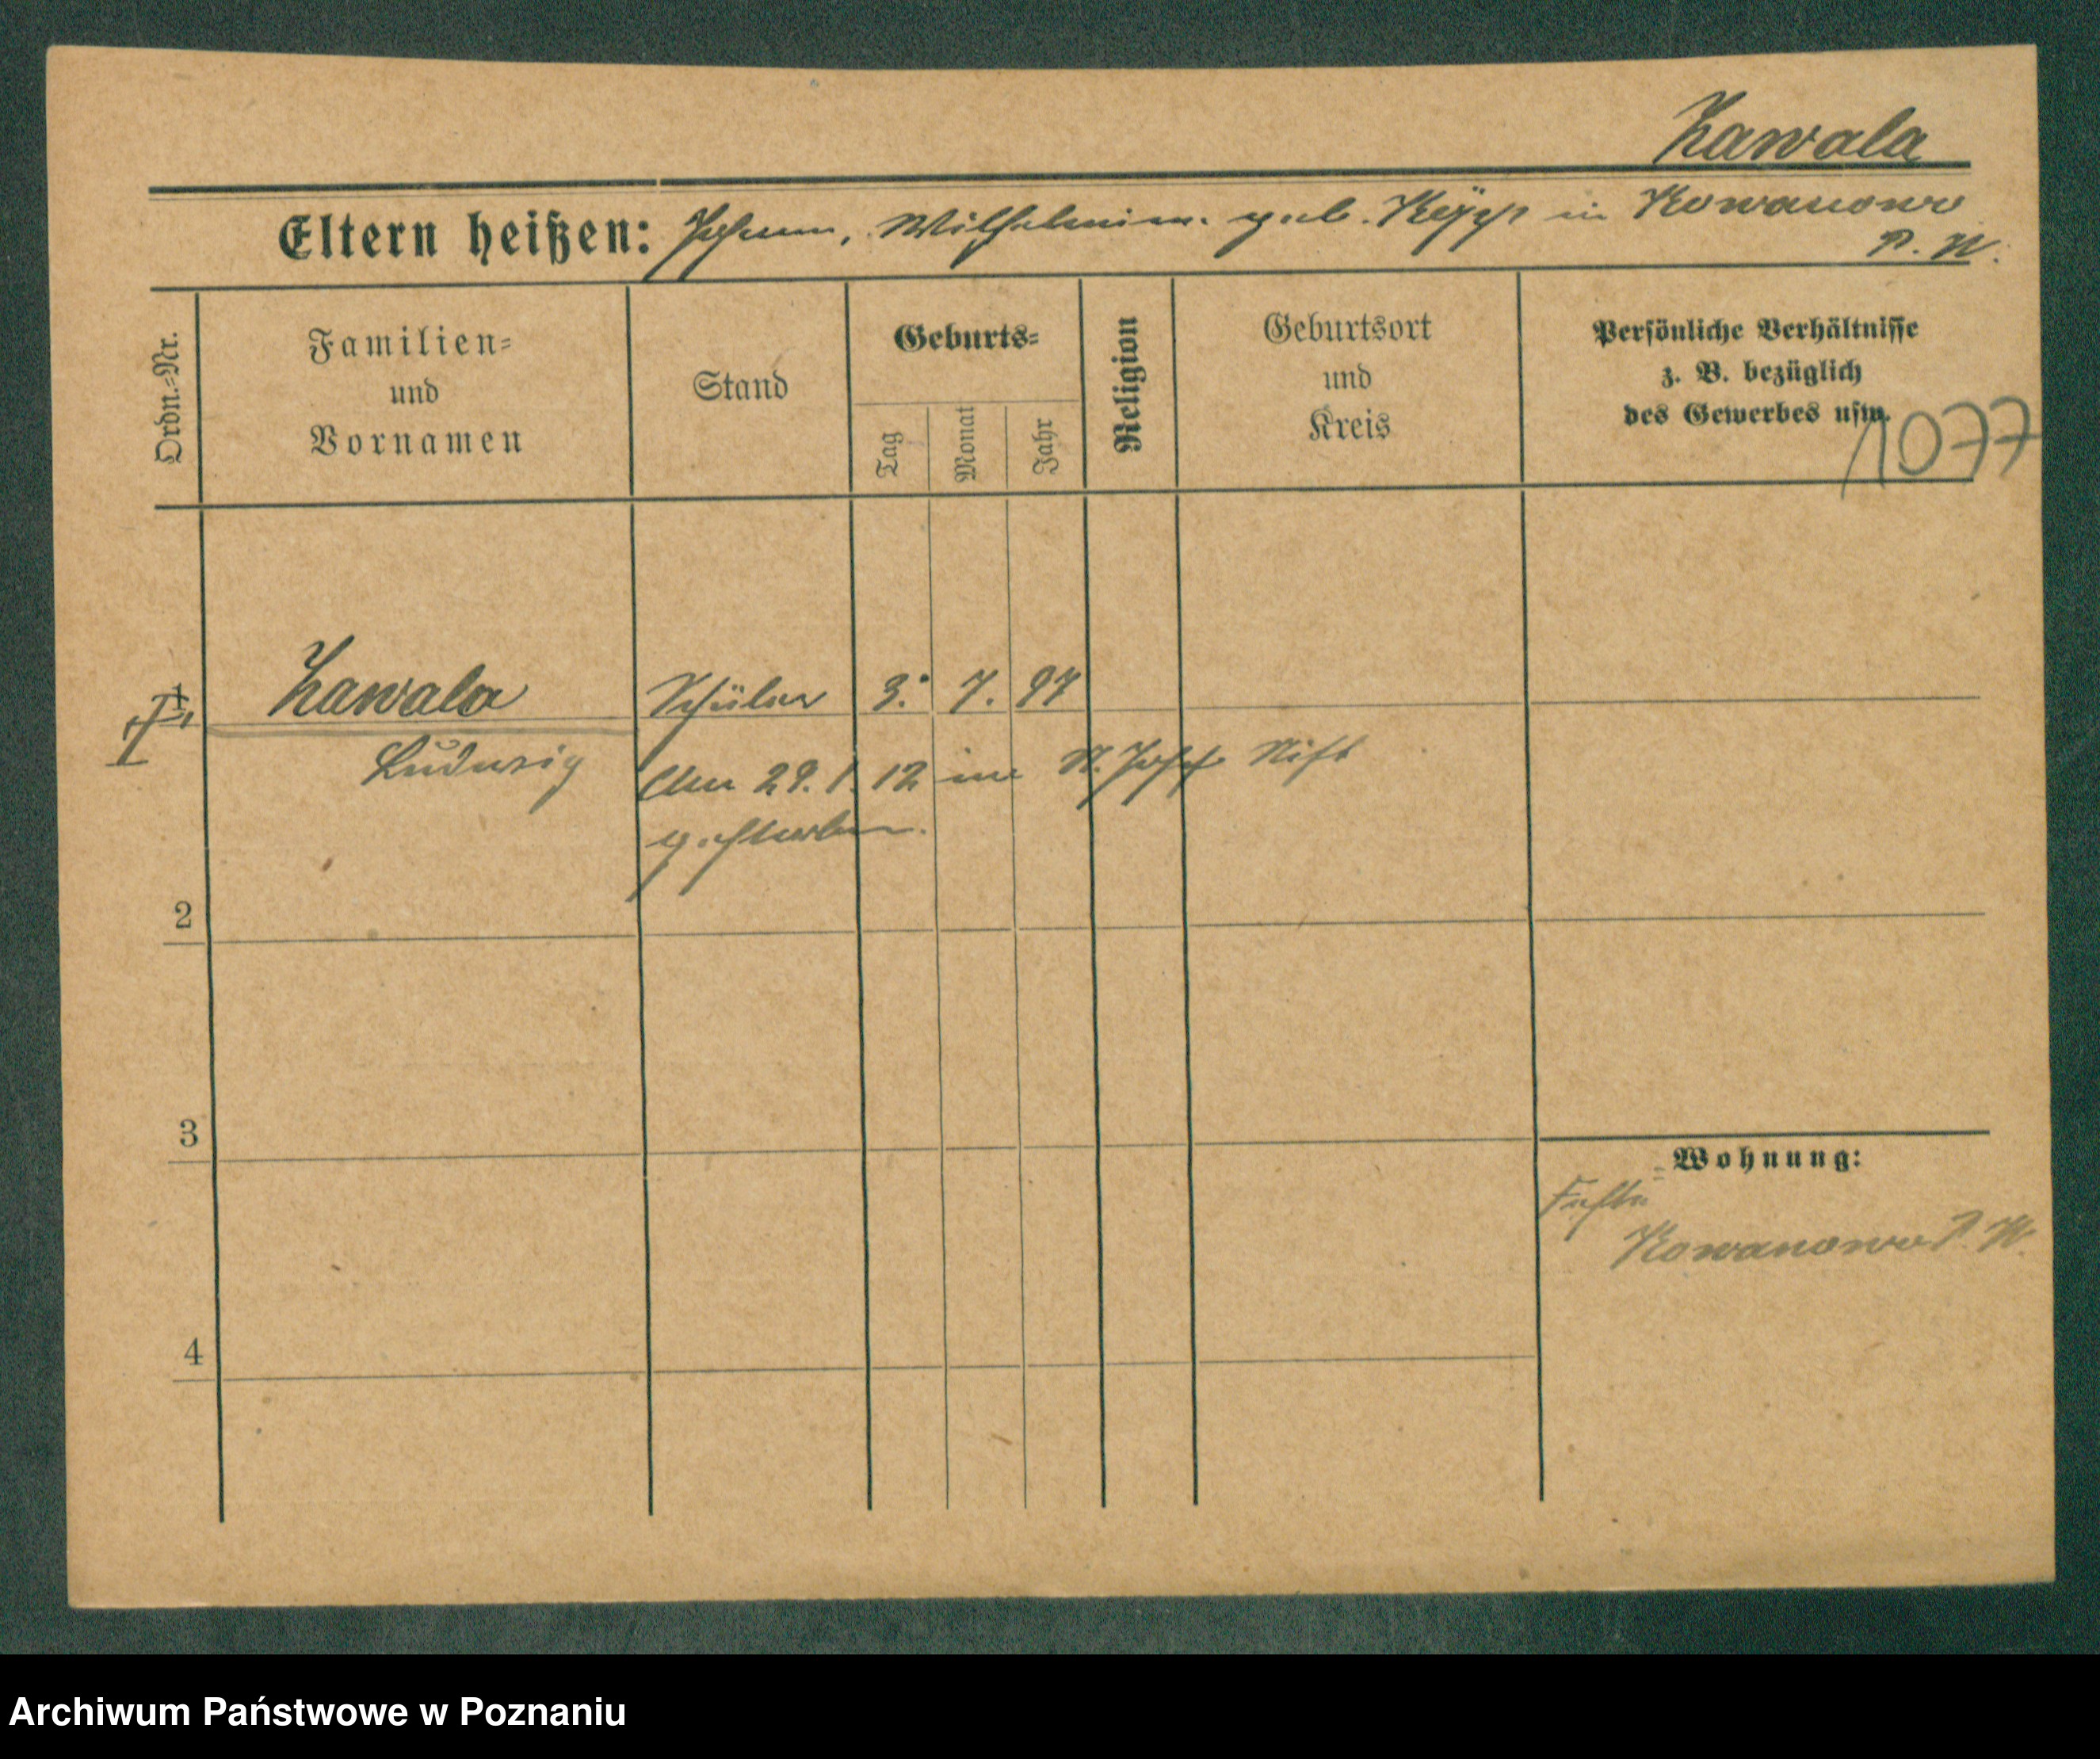 Zawala
Eltern heißen: Johann, Wilhelmine geb. Keÿp in Kowanowo
P. W.
Ordn.=Nr.
Familien=
und
Vornamen
Stand
Geburts=
Tag
Monat
Jahr
Religion
Geburtsort
und
Kreis
Persönliche Verhältnisse
z. B. bezüglich
des Gewerbes usw.
1077
1
Zawala Schüler 3. 7. 97
Ludwig
Am 29. 1. 12 im St. Josef Stift
gestorben.
2
3
4
Wohnung:
Kowanowo P. W.
Archiwum Państwowe w Poznaniu